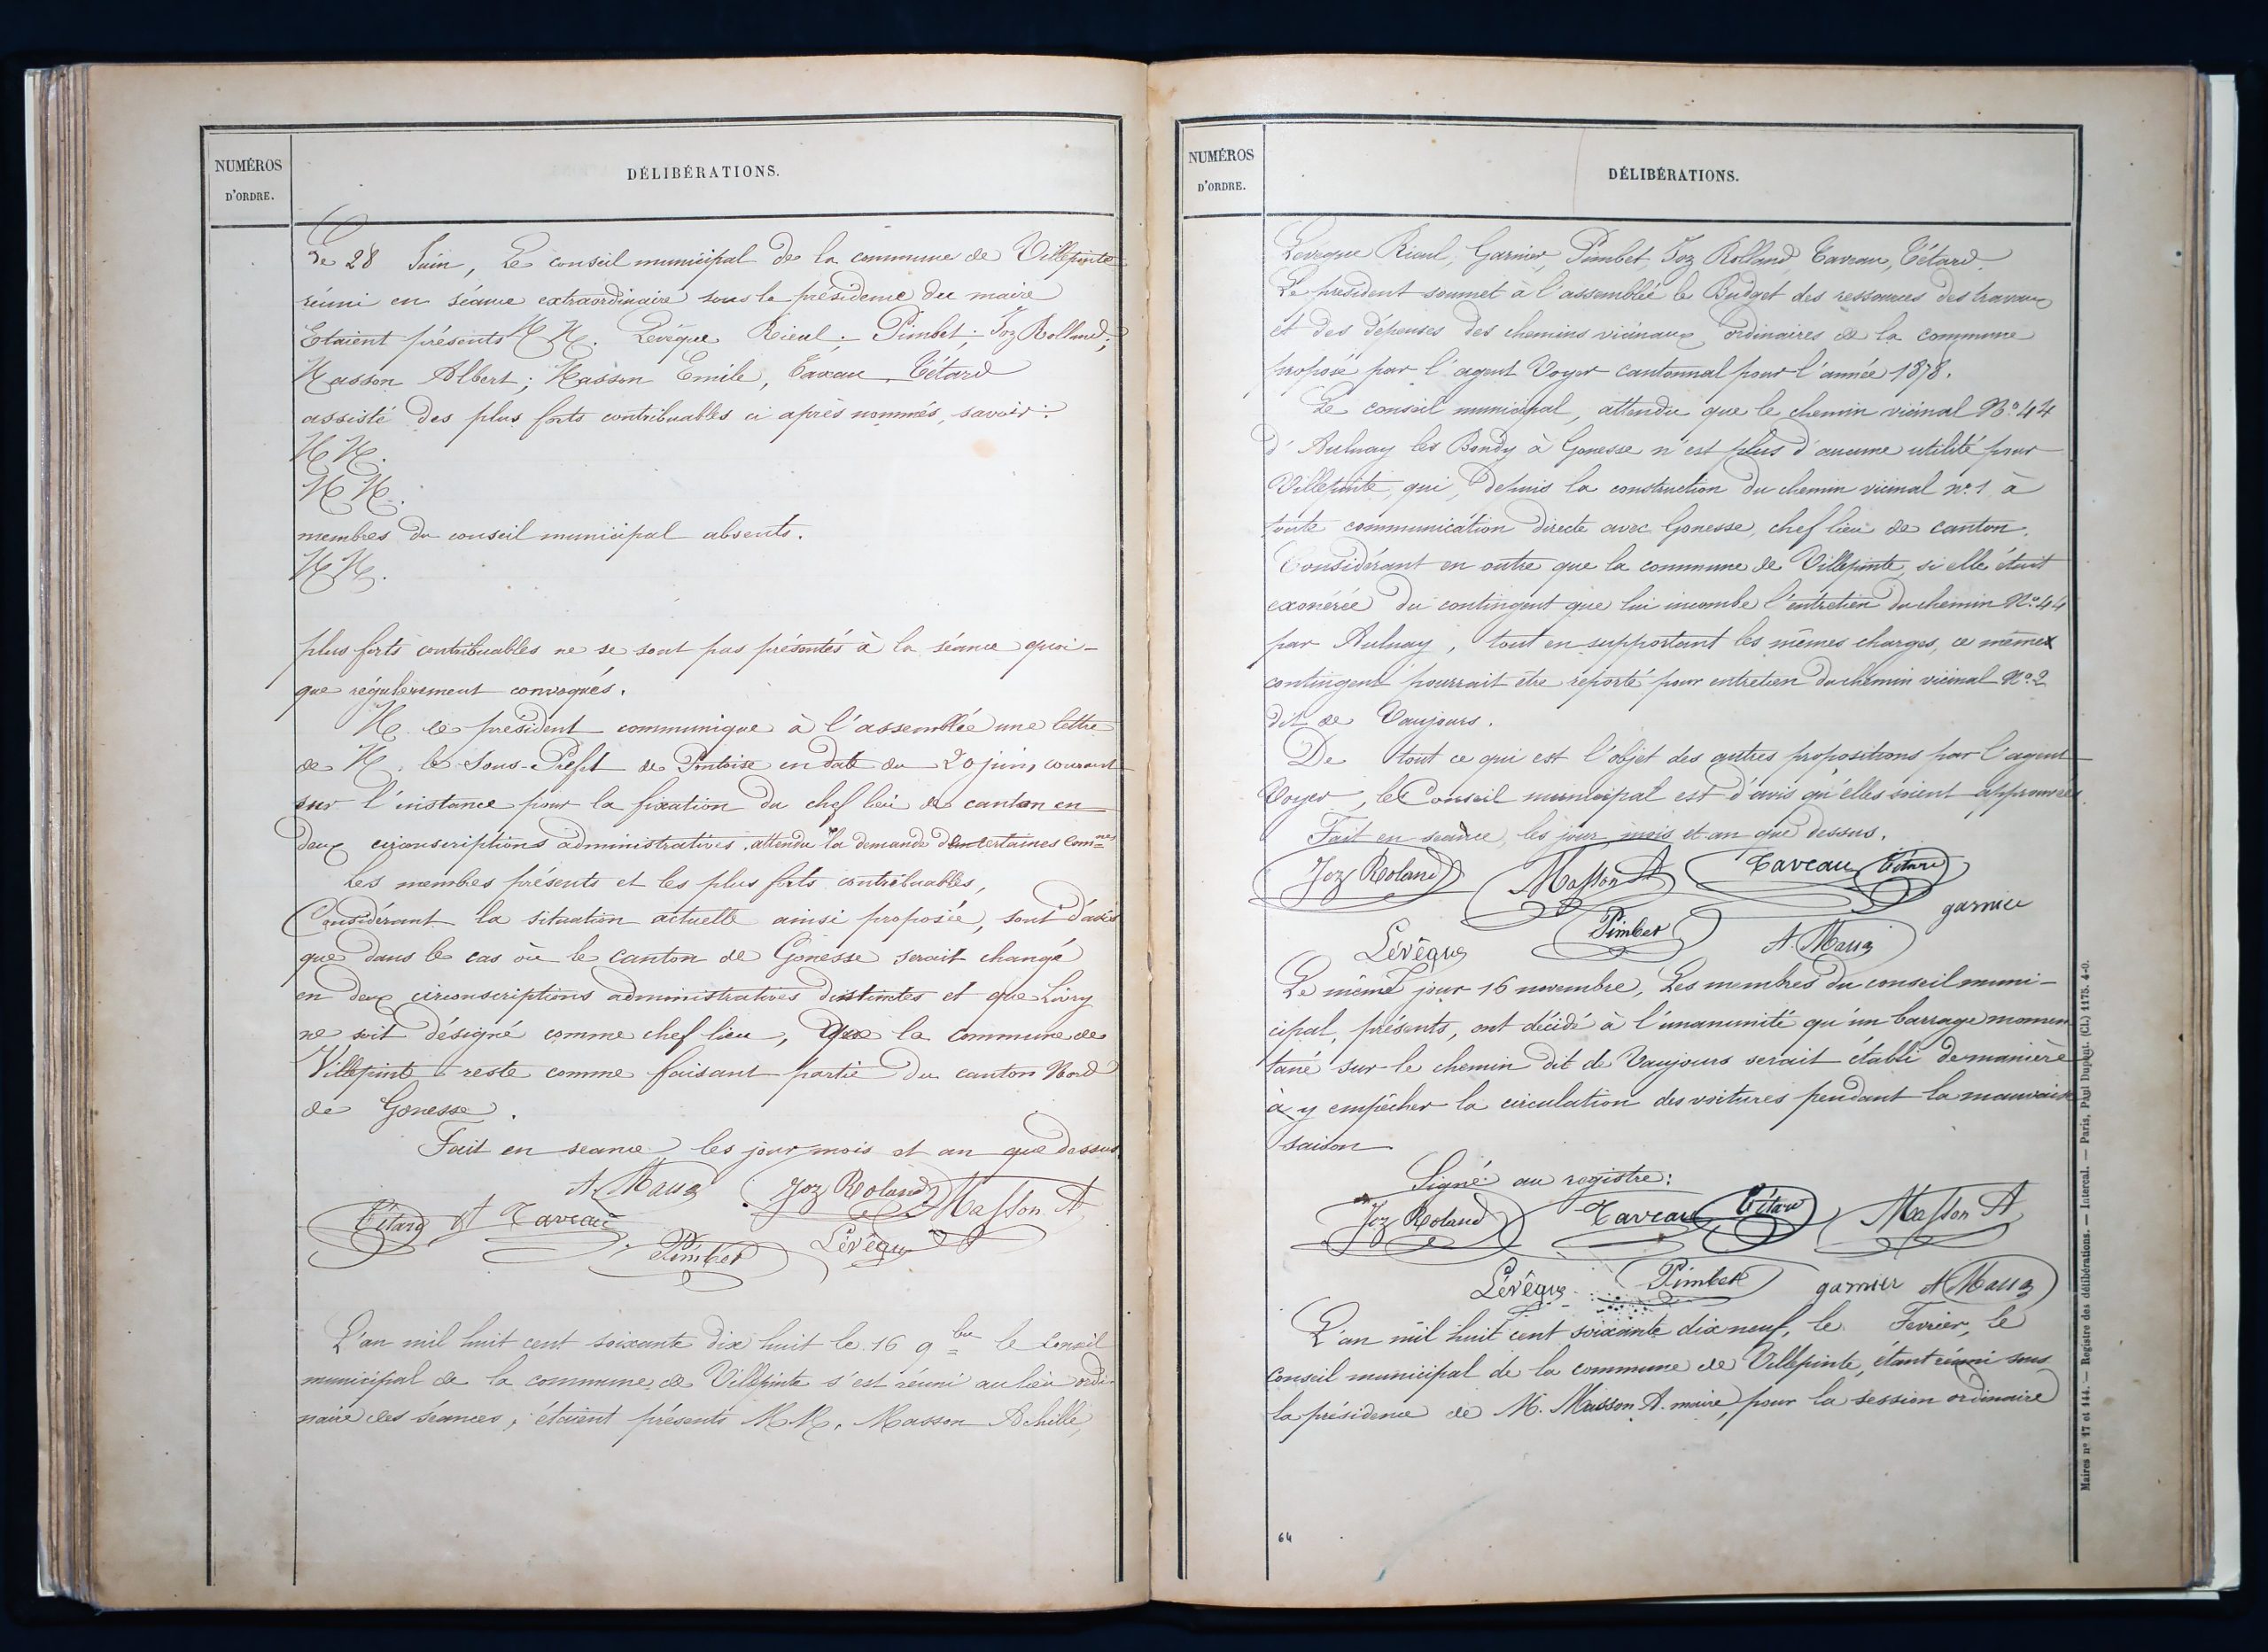 NUMÉROS
D'ORDRE.
DÉLIBÉRATIONS.
Le 28 Juin, Le conseil municipal de la commune de Villepinte
réuni en séance extraordinaire sous la présidence du maire
Etaient présents MM. Levêque Rieul; Pimbet; Joz Rolland;
Masson Albert; Masson Emile, Taveau, Tétard
assisté des plus forts contribuables ci après nommés, savoir:
MM.
MM.
membres du conseil municipal absents.
MM.
plus forts contribuables ne se sont pas présentés à la séance quoi-
que régulièrement convoqués.
M. le président communique à l'assemblée une lettre
de M. le Sous-Préfet de Pontoise en date du 20 juin, courant
sur l'instance pour la fixation du chef lieu de canton en
deux circonscriptions administratives, attendu la demande de certaines Comnes
Les membres présents et les plus forts contribuables,
Considérant la situation actuelle ainsi proposée, sont d'avis
que dans le cas où le canton de Gonesse serait changé
en deux circonscriptions administratives distinctes et que Livry
ne soit désigné comme chef lieu, que la commune de
Villepinte reste comme faisant partie du canton Nord
de Gonesse.
Fait en seance les jour mois et an que dessus
A. Masson Joz Roland Masson A
Tétard Taveau Pimbet Levêque
L'an mil huit cent soixante dix huit le 16 9bre le Conseil
municipal de la commune de Villepinte s'est réuni au lieu ordi-
naire des séances, étaient présents MM. Masson Achille,
NUMÉROS
D'ORDRE.
DÉLIBÉRATIONS.
Leveque Rieul, Garnier, Pimbet, Joz Rolland, Taveau, Tétard.
Le president soumet à l'assemblée le Budget des ressources des travaux
et des dépenses des chemins vicinaux ordinaires de la commune
proposé par l'agent Voyer cantonnal pour l'année 1878.
Le conseil municipal, attendu que le chemin vicinal No. 44
d'Aulnay les Bondy à Gonesse n'est plus d'aucune utilité pour
Villepinte, qui, depuis la construction du chemin vicinal no. 1 à
toute communication directe avec Gonesse, chef lieu de canton.
Considérant en outre que la commune de Villepinte, si elle était
exonérée du contingent que lui incombe l'entretien du chemin No. 44
par Aulnay, tout en supportant les mêmes charges, ce même
contingent pourrait être reporté pour entretien du chemin vicinal No. 2
dit de Vaujours.
De tout ce qui est l'objet des autres propositions par l'agent
Voyer, le Conseil municipal est d'avis qu'elles soient approuvées
Fait en seance, les jour mois et an que dessus.
Joz Roland Masson A Taveau Tétard
garnier
Levêque Pimbet A. Masson
Le même jour 16 novembre, Les membres du conseil muni-
cipal, présents, ont décidé à l'unanimité qu'un barrage momen
tané sur le chemin dit de Vaujours serait établi de manière
à y empêcher la circulation des voitures pendant la mauvaise
saison
Signé au registre:
Joz Roland Taveau Tétard Masson A
Levêque Pimbet garnier A Masson
L'an mil huit cent soixante dix neuf, le Fevrier, le
conseil municipal de la commune de Villepinte, étant réuni sous
la présidence de M. Masson A. maire, pour la session ordinaire
64
Maires no 17 et 144. — Registre des délibérations. — Intercal. — Paris, Paul Dupont. (Cl.) 1175. 4-0.